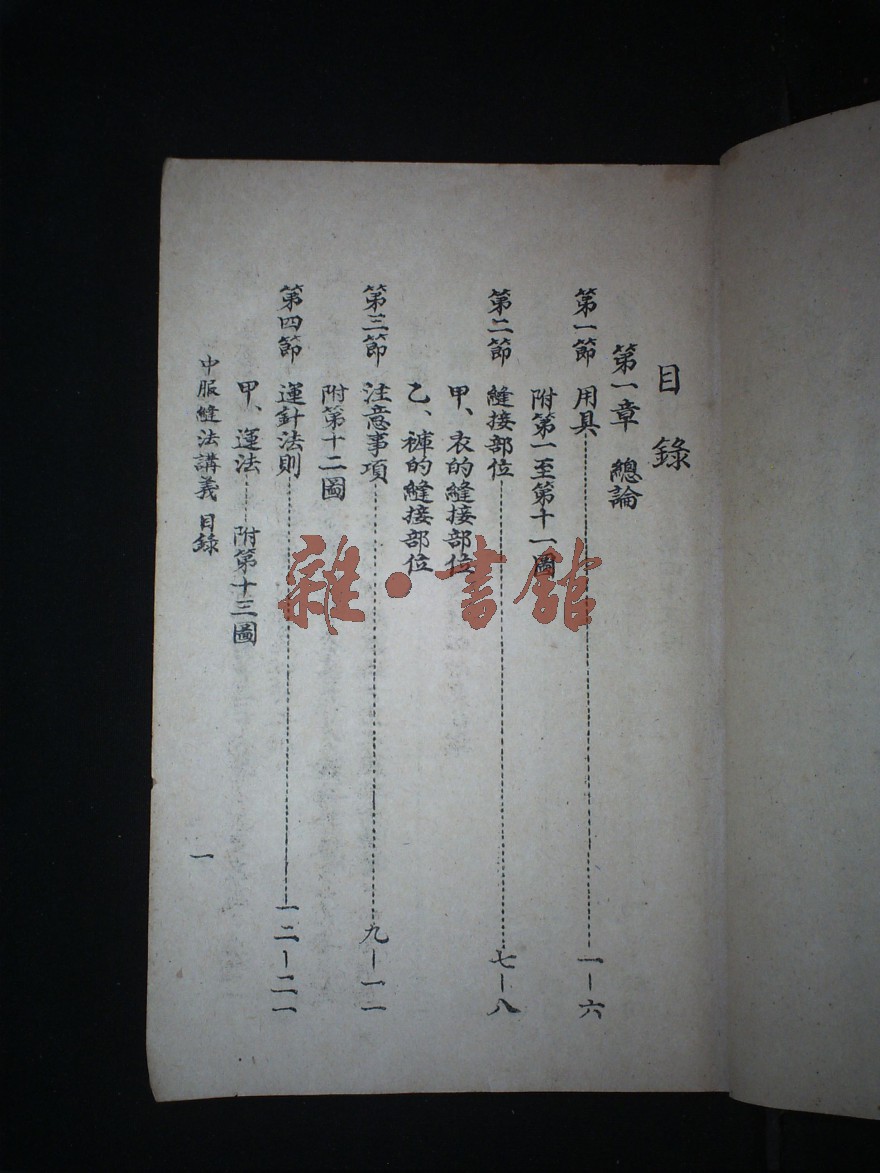 目錄
第一章 總論
第一節 用具 一－六
附第一至第十一圖
第二節 縫接部位 七－八
甲、衣的縫接部位
乙、褲的縫接部位
第三節 注意事項 九－一一
附第十二圖
第四節 運針法則 一二－二一
甲、運法 附第十三圖
中服縫法講義 目錄 一
雜·書館